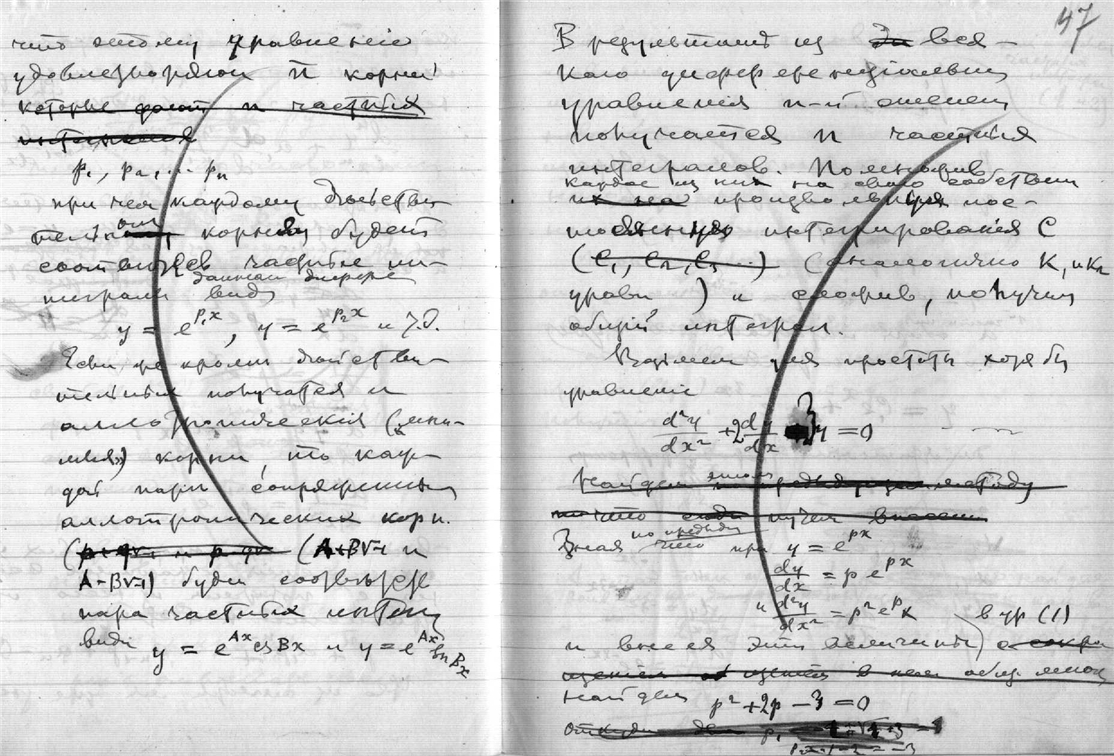 что этому уравненію
удовлетворяют n корней
которые дают n частных
интеграловъ
p₁, p₂, ... pₙ
при чем каждому действи-
тельному корню будет
соответств частные ин-
тегралы вида
y = e^{p₁x}, y = e^{p₂x} и т.д.
Если же кроме действи-
тельных получатся и
аллотропическія („мни-
мыя“) корни, то каж-
дой паре сопряженных
аллотропических корн.
(A+B√-1 и
A-B√-1) будет соответств
пара частных интегр
вида y = e^{Ax} cos Bx и y = e^{Ax} sin Bx
47
В результате из вся-
каго дифференціальн
уравненія n-й степени
получается n частных
интегралов. Помножив
каждое из них на свою собствен
произвольную пос-
тоянную интегрированія C
(C₁, C₂, C₃ ...) (аналогично K₁ и K₂
уравн ) и сложив, получим
общій интеграл.
Возьмем для простоты хотя бы
уравненіе
d²y/dx² + 2 dy/dx - 3y = 0
Найдем
Зная по предыду
щему при y = e^{px}
dy/dx = p e^{px}
и d²y/dx² = p² e^{px} в ур (1)
и внеся эти величины
найдем p² + 2p - 3 = 0
откуда p₁